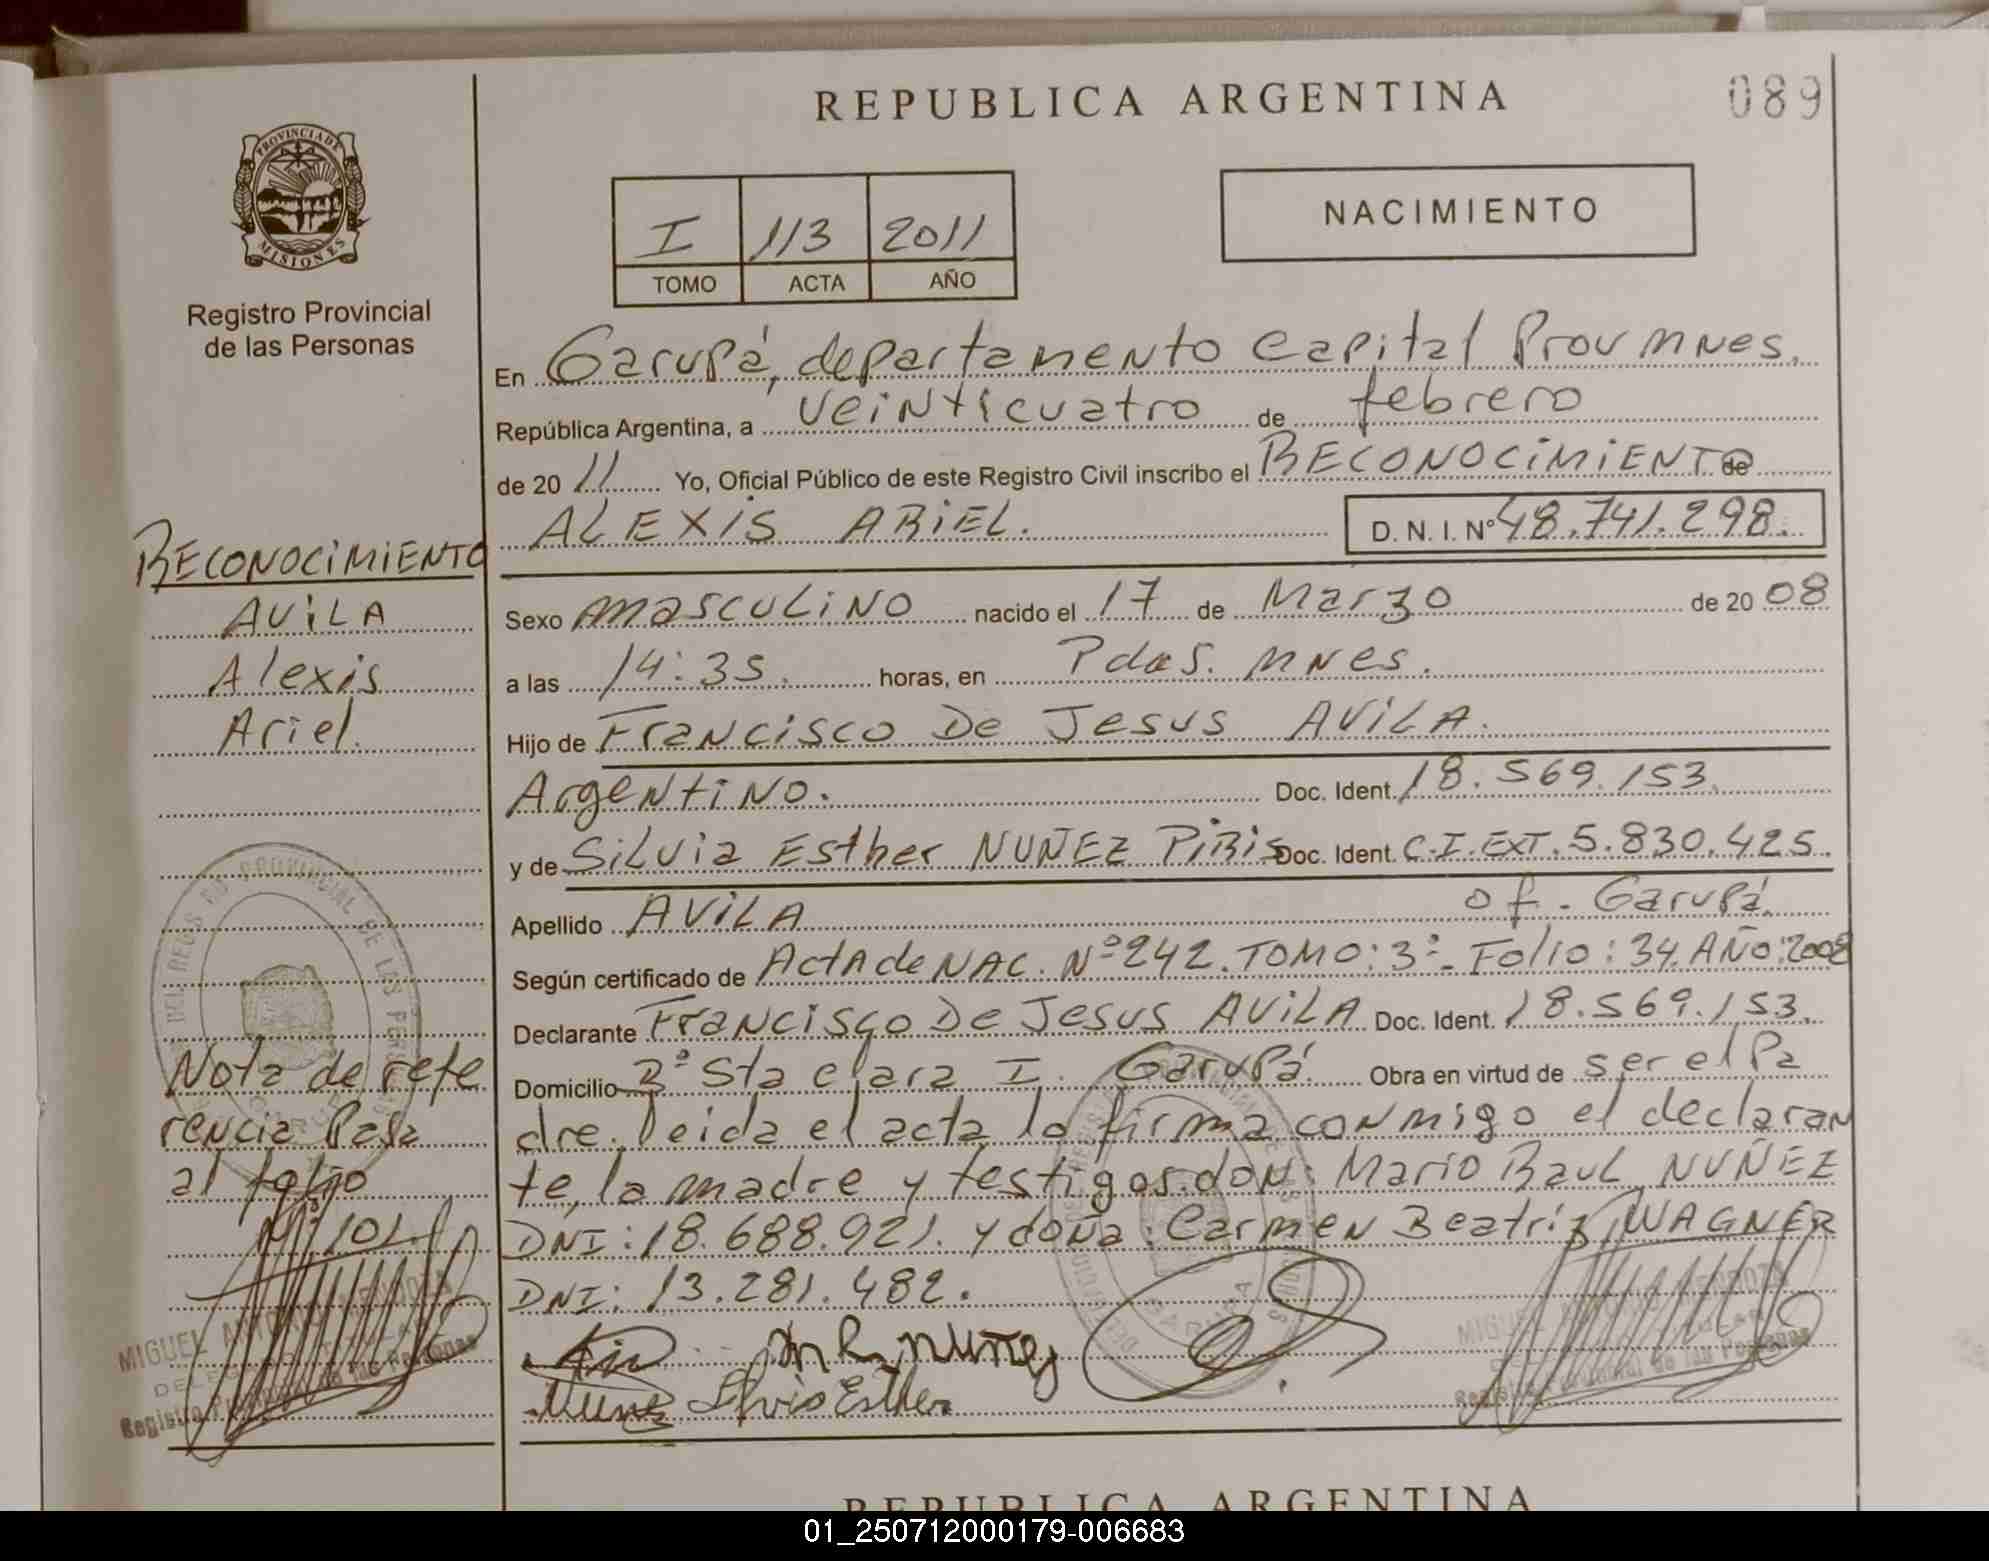 REPUBLICA ARGENTINA
089
PROVINCIA DE
MISIONES
Registro Provincial
de las Personas
I 113 2011
TOMO ACTA AÑO
NACIMIENTO
En Garupá, departamento Capital Prov Mnes.
República Argentina, a veinticuatro de febrero
de 2011 Yo, Oficial Público de este Registro Civil inscribo el RECONOCIMIENTO de
ALEXIS ARIEL. D. N. I. Nº 48.741.298.
RECONOCIMIENTO
AVILA
Alexis
Ariel.
Sexo masculino nacido el 17 de Marzo de 2008
a las 14:35. horas, en Pdas. Mnes.
Hijo de Francisco De Jesus AVILA.
Argentino. Doc. Ident. 18.569.153.
y de Silvia Esther NUÑEZ PIRIS Doc. Ident. C.I.EXT. 5.830.425.
Apellido AVILA of. Garupá.
Según certificado de Acta de NAC. Nº 242. TOMO: 3º- Folio: 34. AÑO: 2008
Declarante Francisco De Jesus AVILA Doc. Ident. 18.569.153.
Domicilio Bº Sta Clara I. Garupá. Obra en virtud de ser el Pa
dre. Leida el acta, la firma conmigo el declaran
te, la madre y testigos. don: Mario Raul NUÑEZ
DNI: 18.688.921. y doña: Carmen Beatriz WAGNER
DNI: 13.281.482.
Nota de refe
rencia Pasa
al folio
Nº 101.
MIGUEL ANTONIO MENDOZA
DELEGADO TITULAR
Registro Provincial de las Personas
M R Nuñez
Nunez Silvia Esther
MIGUEL ANTONIO MENDOZA
DELEGADO TITULAR
Registro Provincial de las Personas
REPUBLICA ARGENTINA
01_250712000179-006683